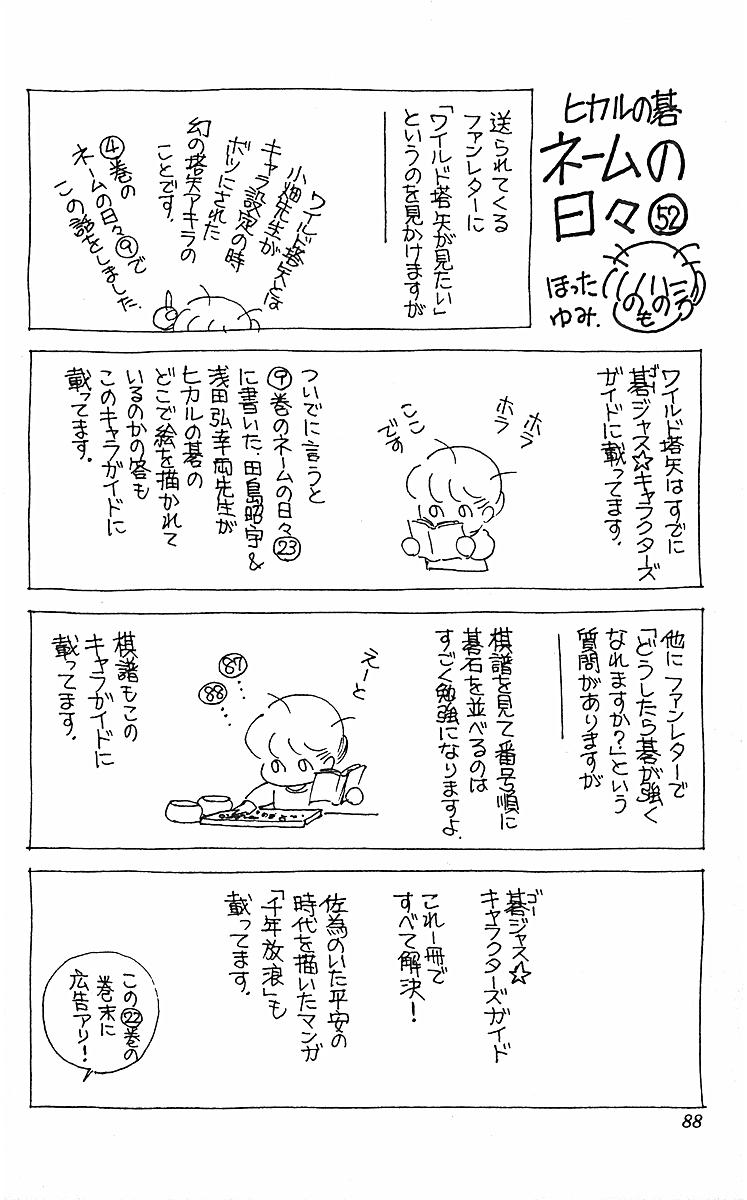 ヒカルの碁
ネームの
日々㊾
ほった
ゆみ.
送られてくる
ファンレターに
「ワイルド塔矢が見たい」
というのを見かけますが
ワイルド塔矢とは
小畑先生が
キャラ設定の時
ボツにされた
幻の塔矢アキラの
ことです.
④巻の
ネームの日々⑨で
この話をしました.
ワイルド塔矢はすでに
碁ジャス☆キャラクターズ
ゴー
ガイドに載ってます.
ホラ
ホラ
ここ
です
ついでに言うと
⑨巻のネームの日々㉓
に書いた、田島昭宇&
浅田弘幸両先生が
ヒカルの碁の
どこで絵を描かれて
いるのかの答も
このキャラガイドに
載ってます.
他にファンレターで
「どうしたら碁が強く
なれますか?」という
質問がありますが
棋譜を見て番号順に
碁石を並べるのは
すごく勉強になりますよ.
えーと
87
88
棋譜もこの
キャラガイドに
載ってます.
碁ジャス☆
ゴー
キャラクターズガイド
これ一冊で
すべて解決!
佐為のいた平安の
時代を描いたマンガ
「千年放浪」も
載ってます.
この㉒巻の
巻末に
広告アリ!
88